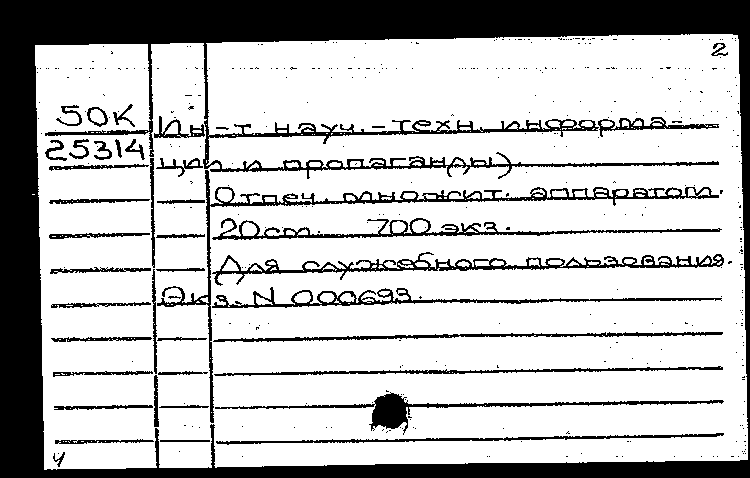 2
50К Ин-т науч.-техн. информа-
25314 ции и пропаганды).
Отпеч. множит. аппаратом.
20см. 700 экз.
Для служебного пользования.
Экз. N 000693.
ч